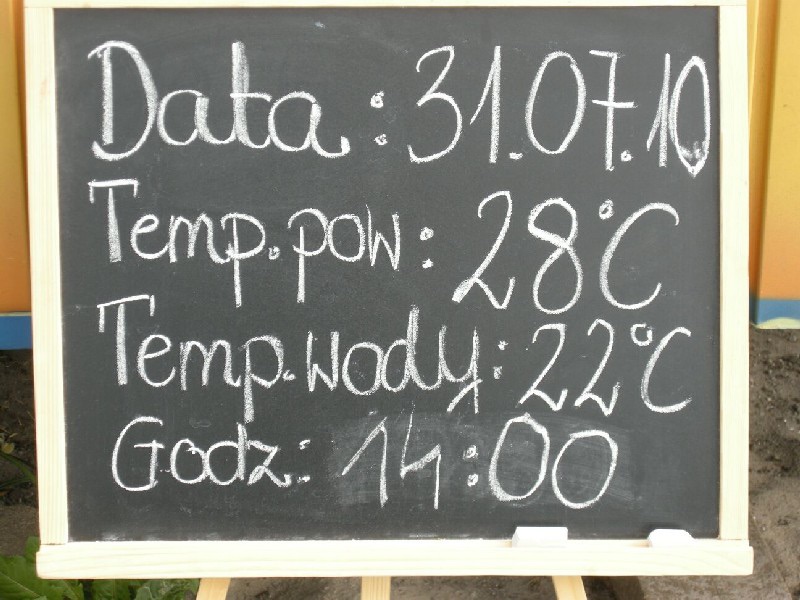 Data: 31.07.10
Temp.pow: 28°C
Temp.wody: 22°C
Godz: 14:00